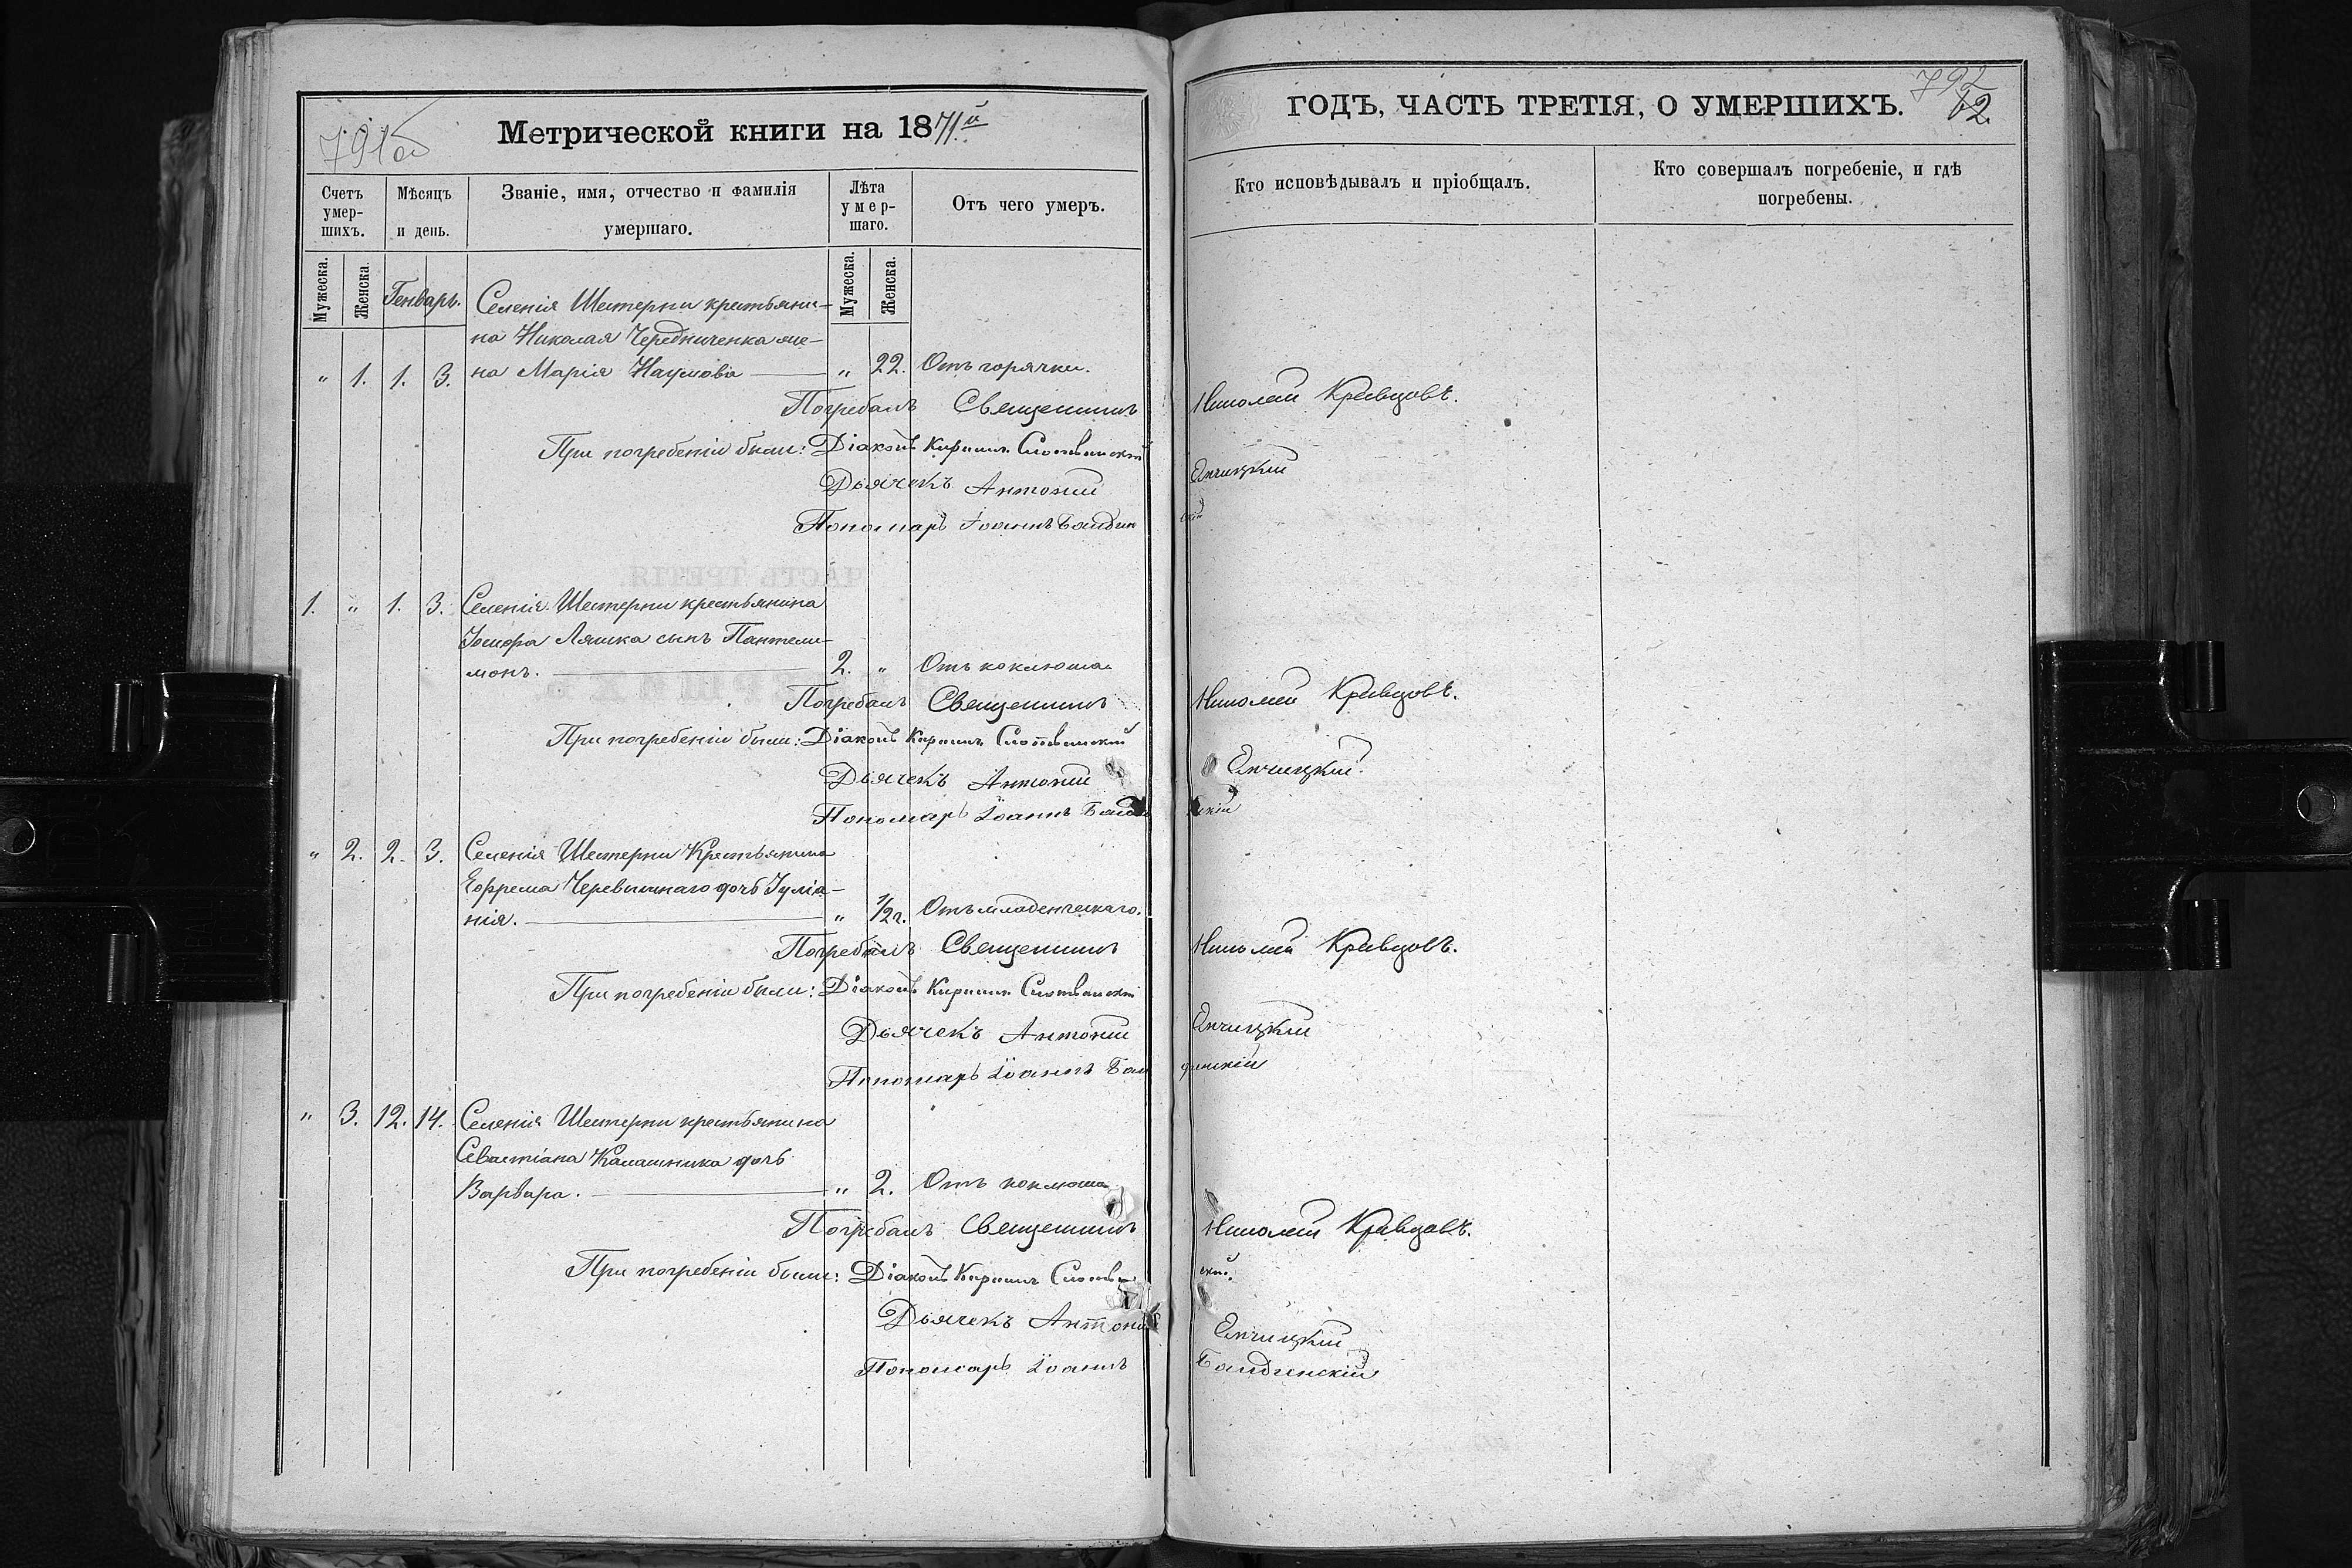 791об
Метрической книги на 1871й
ГОДЪ, ЧАСТЬ ТРЕТІЯ, О УМЕРШИХЪ.
792
12
Счетъ умер-шихъ.
Мѣсяцъ и день.
Званіе, имя, отчество и фамилія умершаго.
Лѣта умер-шаго.
Отъ чего умеръ.
Кто исповѣдывалъ и пріобщалъ.
Кто совершалъ погребеніе, и гдѣ погребены.
Мужеска.
Женска.
Генварь.
Мужеска.
Женска.
Селенія Шестерни крестьяни-
на Николая Чередниченка же-
„ 1. 1. 3. на Марія Наумова „ 22. Отъ горячки.
Погребалъ Священникъ Николай Кравцовъ.
При погребеніи были: Діаконъ Кириллъ
Дьячекъ Антоній
Пономарь Іоаннъ Балдинскій
1. „ 1. 3. Селенія Шестерни крестьянина
Ляшка сынъ Пантели-
монъ. 2. „ Отъ коклюша
Погребалъ Священникъ Николай Кравцовъ.
При погребеніи были: Діаконъ Кириллъ
Дьячекъ Антоній
Пономарь Іоаннъ
„ 2. 2. 3. Селенія Шестерни Крестьянина
Ефрема дочь Іуліа-
нія. „ 1/2 г. Отъ младенческаго.
Погребалъ Священникъ Николай Кравцовъ.
При погребеніи были: Діаконъ Кириллъ
Дьячекъ Антоній
Пономарь Іоаннъ Балдинскій
„ 3. 12. 14. Селенія Шестерни крестьянина
Севастіана Калашника дочь
Варвара. „ 2. Отъ коклюша
Погребалъ Священникъ Николай Кравцовъ.
При погребеніи были: Діаконъ Кириллъ
Дьячекъ Антоній
Пономарь Іоаннъ Балдинскій